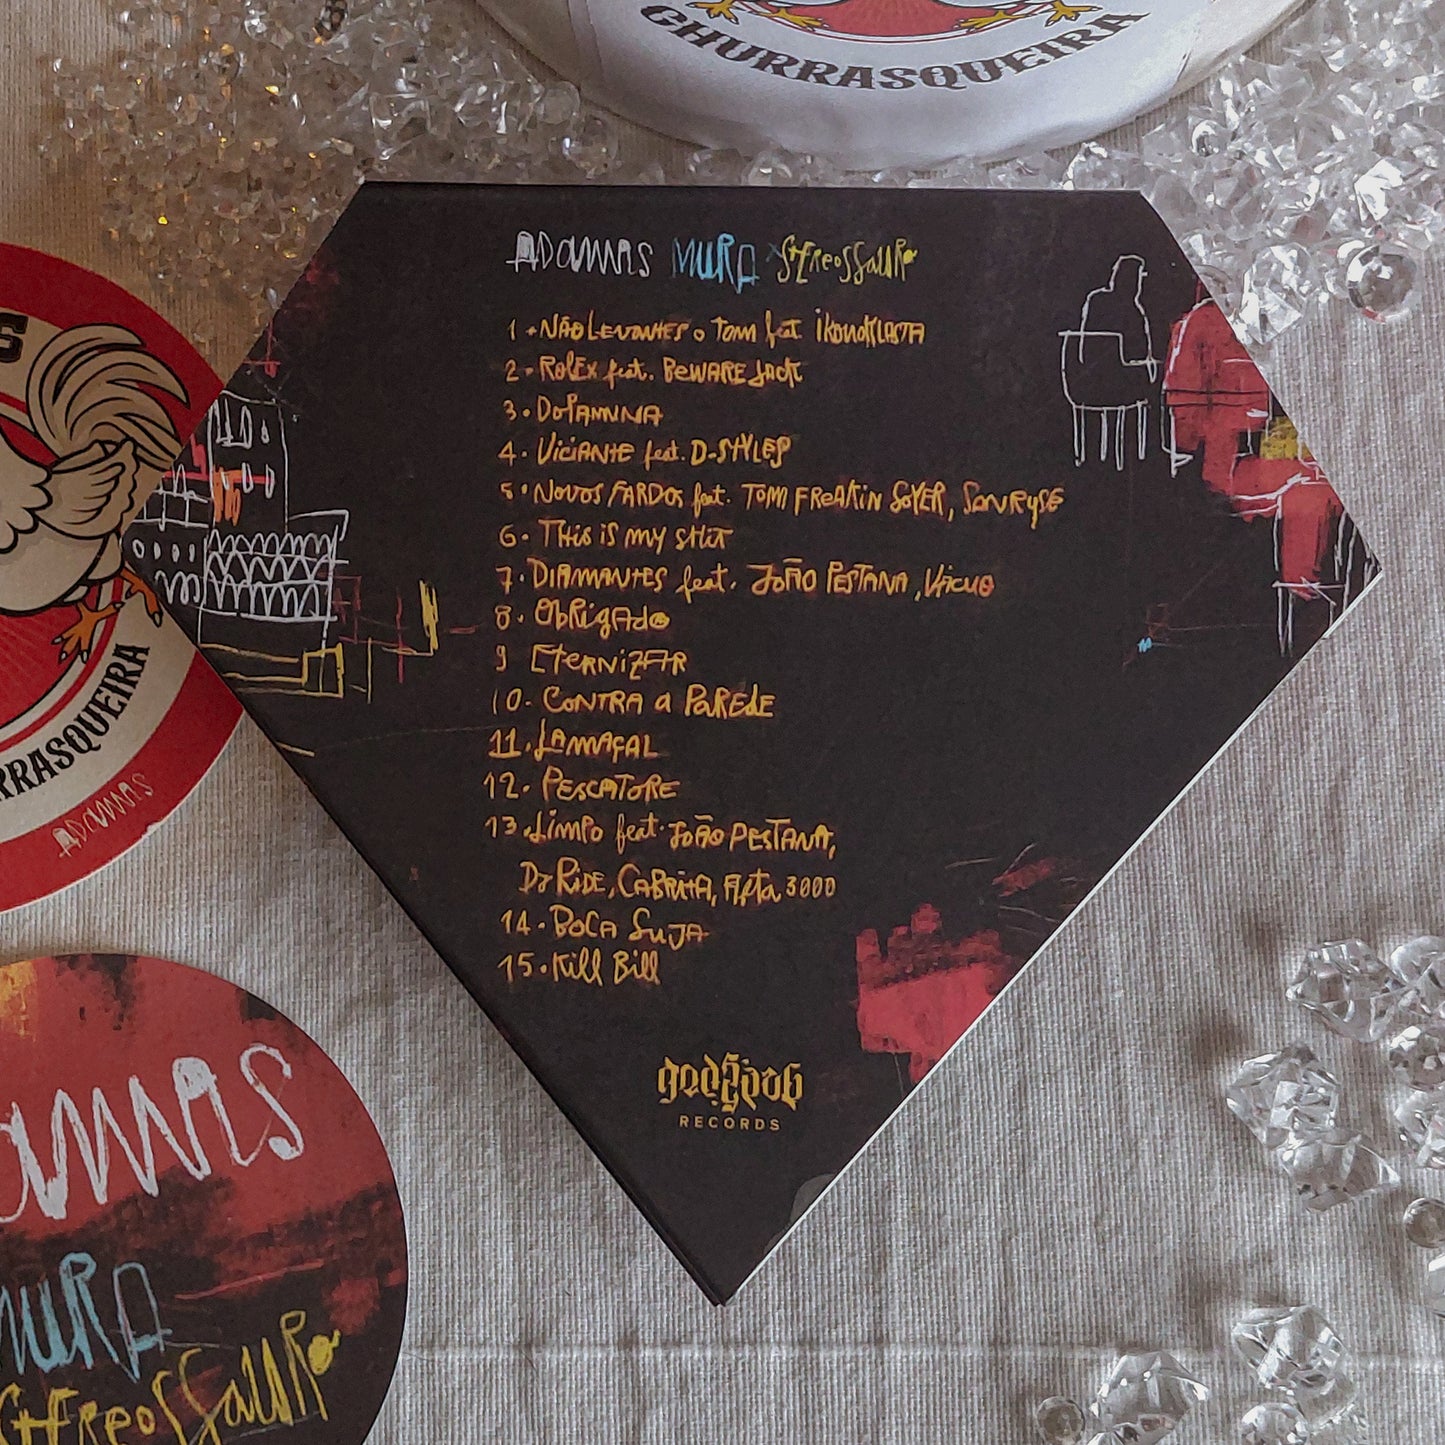 CHURRASQUEIRA
ADAMAS MURA STEREOSSAURO
1 • NÃO LEVANTES O TOM feat IKONOKLASTA
2 • ROLEX feat. BEWARE JACK
3 • DOPAMINA
4 • VICIANTE feat. D-STYLES
5 • NOVOS FARDOS feat. TOM FREAKIN SOYER, SANRYSE
6 • THIS IS MY SHIT
7 • DIAMANTES feat. JOÃO PESTANA, VÁCUO
8 • OBRIGADO
9 ETERNIZAR
10 • CONTRA A PAREDE
11 • LAMAÇAL
12 • PESCATORE
13 • LIMPO feat. JOÃO PESTANA,
DJ RIDE, CABRITA, 3000
14 • BOCA SUJA
15 • KILL BILL
RECORDS
S
RRASQUEIRA
ADAMAS
AMAS
MURA
STEREOSSAURO